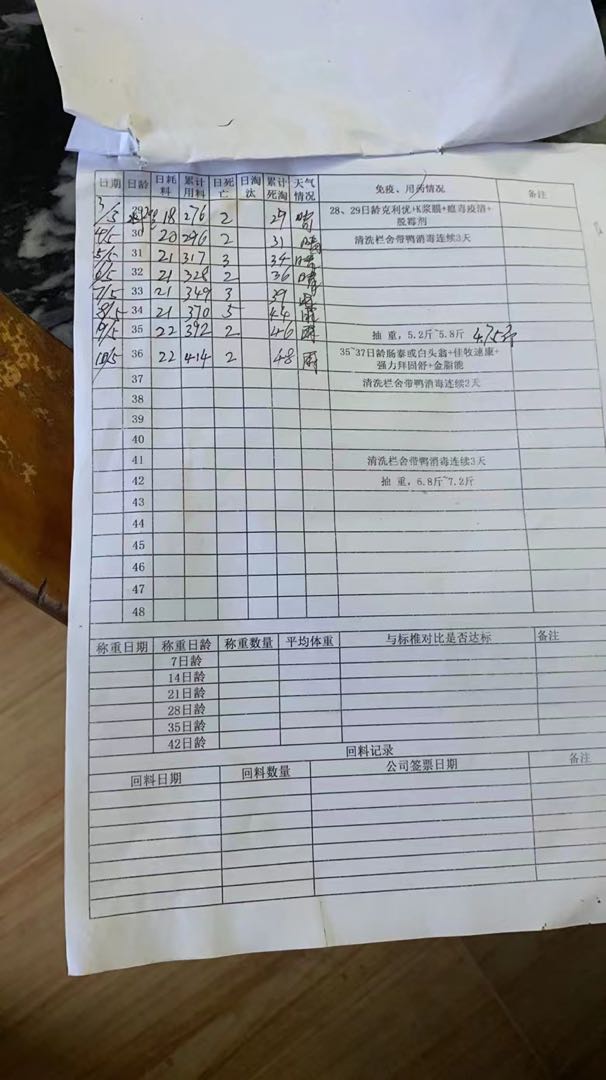 日期 日龄 日耗料 累计用料 日死亡 日淘汰 累计死淘 天气情况 免疫、用药情况 备注
3/5 29 18 276 2 29 晴 28、29日龄克利优+K浆膜+瘟毒疫清+脱霉剂
4/5 30 20 296 2 31 晴 清洗栏舍带鸭消毒连续3天
5/5 31 21 317 3 34 晴
6/5 32 21 328 2 36 晴
7/5 33 21 349 3 39
8/5 34 21 370 5 44
9/5 35 22 392 2 46 雨 抽 重，5.2斤~5.8斤 4.75斤
10/5 36 22 414 2 48 雨 35~37日龄肠泰或白头翁+佳牧速康+强力拜固舒+金脂能
37 清洗栏舍带鸭消毒连续2天
38
39
40
41 清洗栏舍带鸭消毒连续3天
42 抽 重，6.8斤~7.2斤
43
44
45
46
47
48
称重日期 称重日龄 称重数量 平均体重 与标椎对比是否达标 备注
7日龄
14日龄
21日龄
28日龄
35日龄
42日龄
回料记录
回料日期 回料数量 公司签票日期 备注